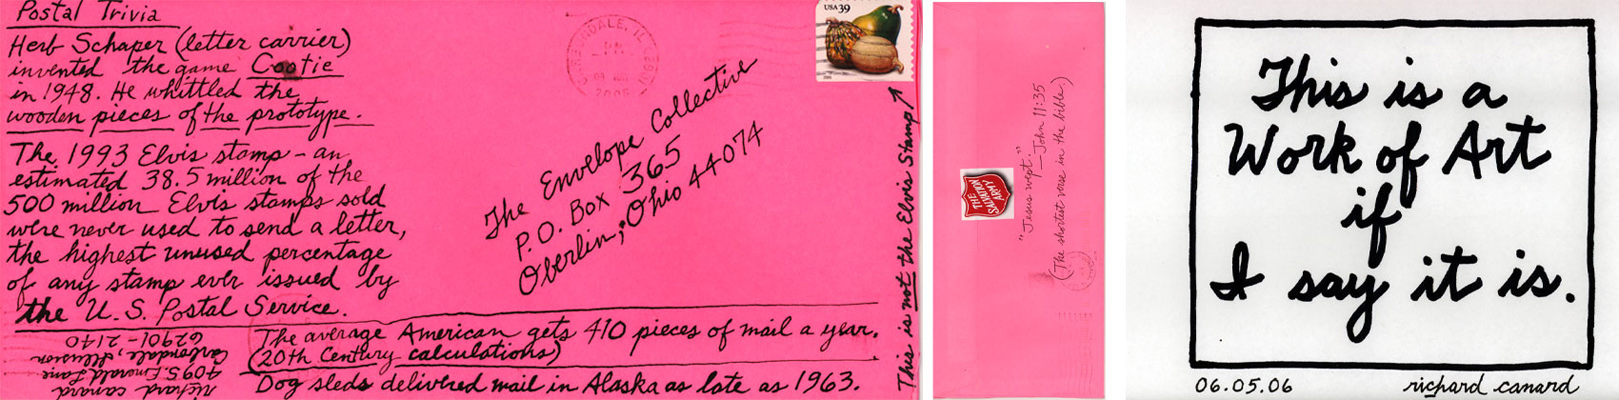 Postal Trivia
Herb Schaper (letter carrier)
invented the game Cootie
in 1948. He whittled the
wooden pieces of the prototype.
The 1993 Elvis stamp – an
estimated 38.5 million of the
500 million Elvis stamps sold
were never used to send a letter,
the highest unused percentage
of any stamp ever issued by
the U.S. Postal Service.
The average American gets 410 pieces of mail a year.
(20th Century calculations)
Dog sleds delivered mail in Alaska as late as 1963.
richard canard
409 S. Emerald Lane
Carbondale, Illusion
62901-2140
USA 39
The Envelope Collective
P.O. Box 365
Oberlin, Ohio 44074
This is not the Elvis Stamp
THE
SALVATION
ARMY
"Jesus wept."
—John 11:35
(The shortest verse in the bible)
This is a
Work of Art
if
I say it is.
06.05.06
richard canard